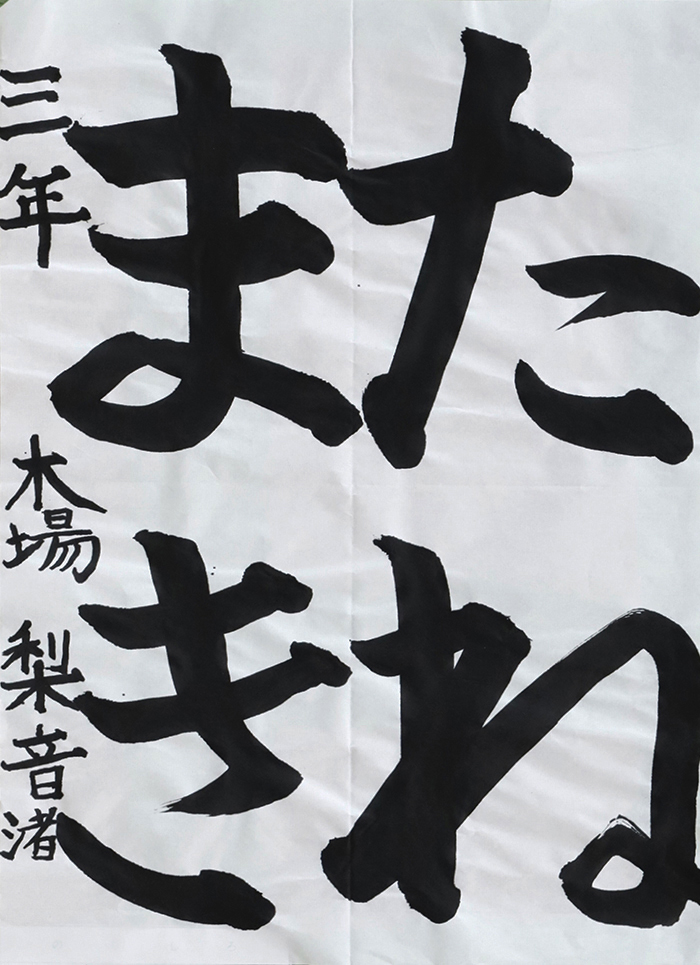 たね
まき
三年 木場 梨音渚